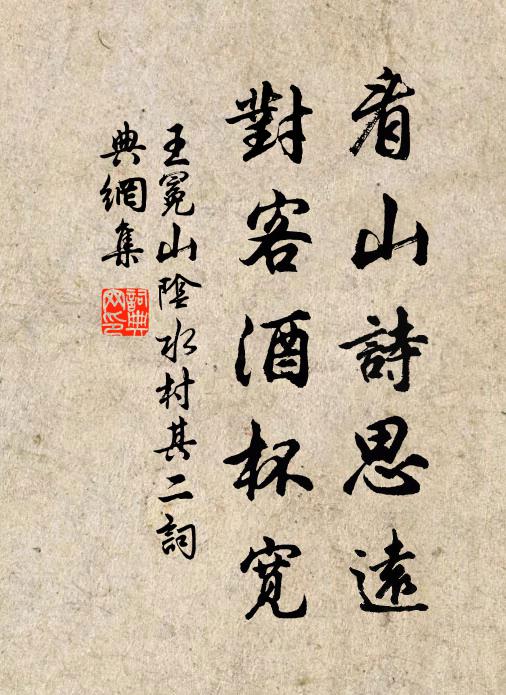 看山詩思遠
對客酒杯寬
王冕山陰水村其二詞
典網集
詞典網印